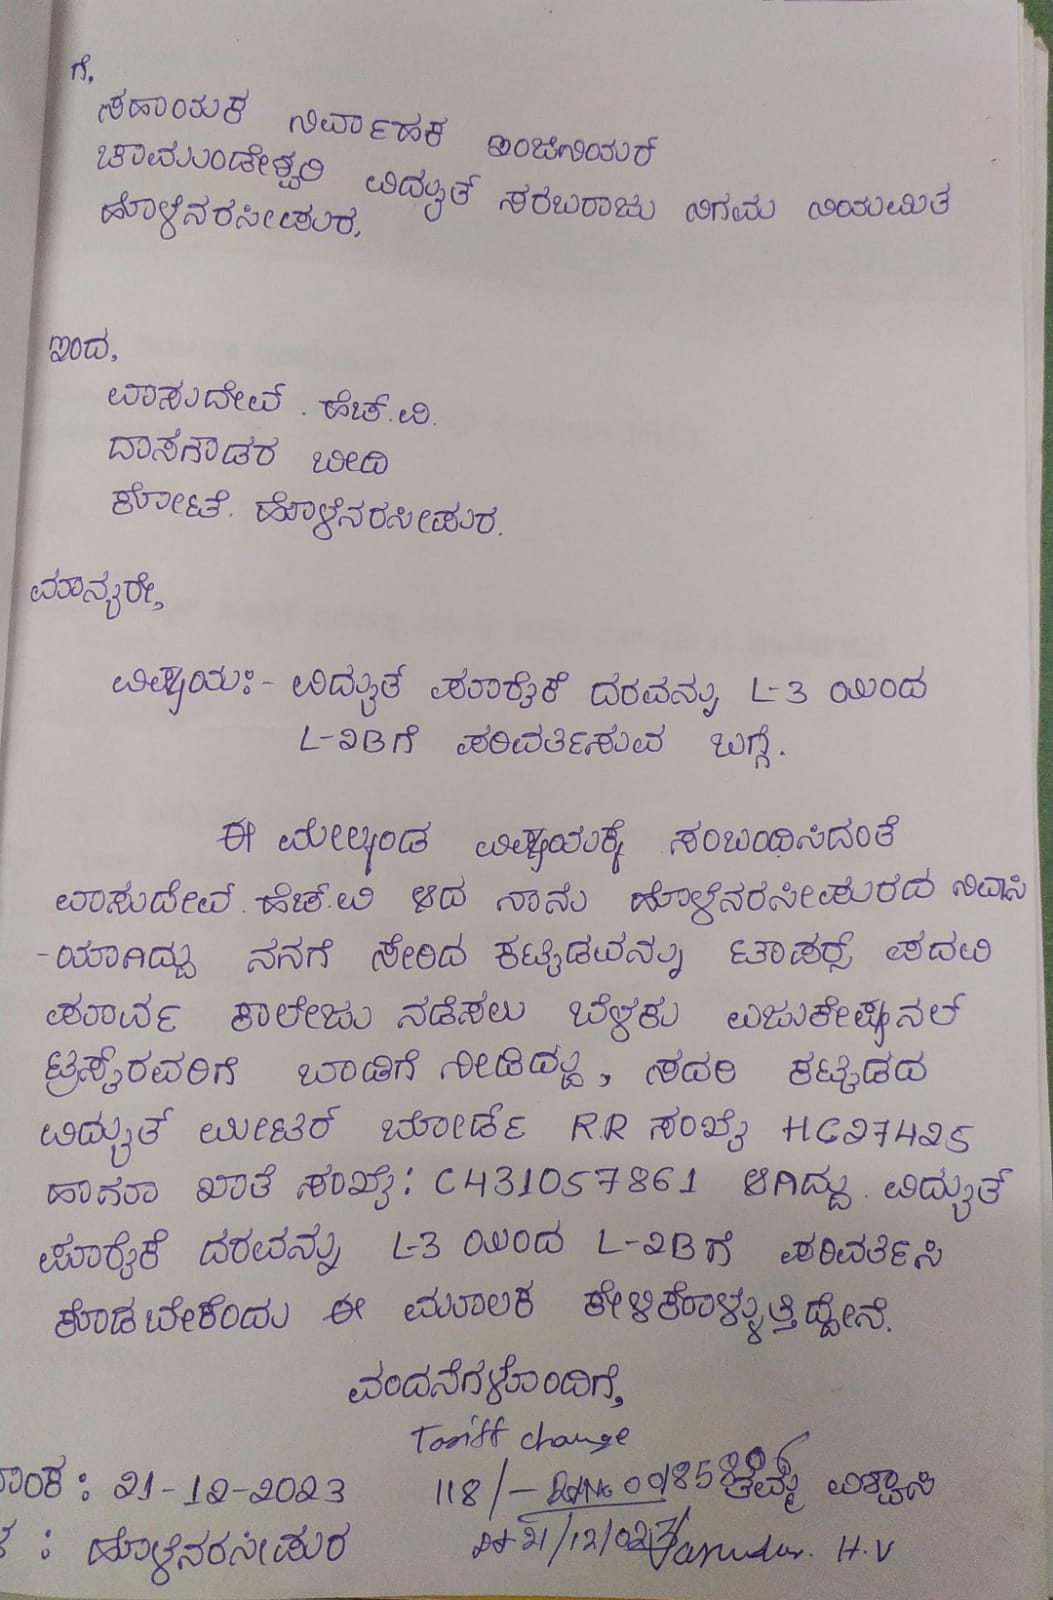 ಗೆ,
ಸಹಾಯಕ ನಿರ್ವಾಹಕ ಇಂಜಿನಿಯರ್
ಚಾಮುಂಡೇಶ್ವರಿ ವಿದ್ಯುತ್ ಸರಬರಾಜು ನಿಗಮ ನಿಯಮಿತ
ಹೊಳೆನರಸೀಪುರ.
ಇಂದ,
ವಾಸುದೇವ್. ಹೆಚ್.ವಿ.
ದಾಸಗೌಡರ ಬೀದಿ
ಕೋಟೆ. ಹೊಳೆನರಸೀಪುರ.
ಮಾನ್ಯರೇ,
ವಿಷಯ:- ವಿದ್ಯುತ್ ಪೂರೈಕೆ ದರವನ್ನು L-3 ಯಿಂದ
L-2Bಗೆ ಪರಿವರ್ತಿಸುವ ಬಗ್ಗೆ.
ಈ ಮೇಲ್ಕಂಡ ವಿಷಯಕ್ಕೆ ಸಂಬಂಧಿಸಿದಂತೆ
ವಾಸುದೇವ್. ಹೆಚ್.ವಿ ಆದ ನಾನು ಹೊಳೆನರಸೀಪುರದ ನಿವಾಸಿ
-ಯಾಗಿದ್ದು ನನಗೆ ಸೇರಿದ ಕಟ್ಟಡವನ್ನು ಟಾಪರ್ಸ್ ಪದವಿ
ಪೂರ್ವ ಕಾಲೇಜು ನಡೆಸಲು ಬೆಳಕು ಎಜುಕೇಷನಲ್
ಟ್ರಸ್ಟ್‌ರವರಿಗೆ ಬಾಡಿಗೆ ನೀಡಿದ್ದು, ಸದರಿ ಕಟ್ಟಡದ
ವಿದ್ಯುತ್ ಮೀಟರ್ ಬೋರ್ಡ್ R.R ಸಂಖ್ಯೆ HC27425
ಹಾಗೂ ಖಾತೆ ಸಂಖ್ಯೆ: C431057861 ಆಗಿದ್ದು. ವಿದ್ಯುತ್
ಪೂರೈಕೆ ದರವನ್ನು L-3 ಯಿಂದ L-2Bಗೆ ಪರಿವರ್ತಿಸಿ
ಕೊಡಬೇಕೆಂದು ಈ ಮೂಲಕ ಕೇಳಿಕೊಳ್ಳುತ್ತಿದ್ದೇನೆ.
ವಂದನೆಗಳೊಂದಿಗೆ,
Tariff change
ಾಂಕ : 21-12-2023 118/- ತಮ್ಮ ವಿಶ್ವಾಸಿ
: ಹೊಳೆನರಸೀಪುರ H.V